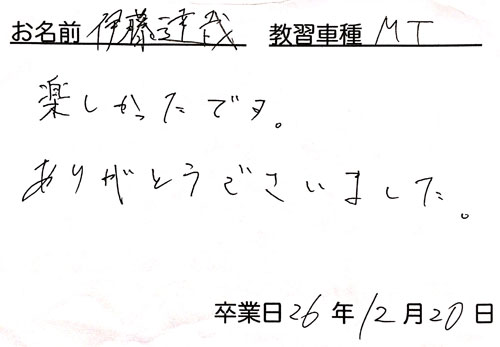 お名前 伊藤達哉 教習車種 MT
楽しかったです。
ありがとうございました。
卒業日26年12月20日